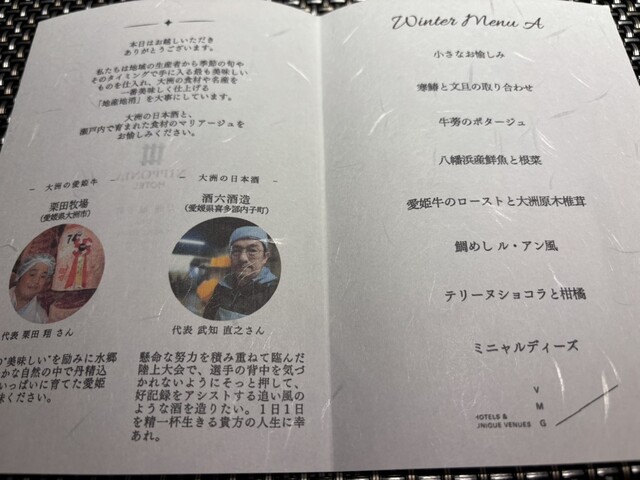 本日はお越しいただき
ありがとうございます。
私たちは地域の生産者から季節の旬や
そのタイミングで手に入る最も美味しい
ものを仕入れ、大洲の食材や名産を
一番美味しく仕上げる
「地産地消」を大事にしています。
大洲の日本酒と、
瀬戸内で育まれた食材のマリアージュを
お愉しみください。
大洲の愛姫牛
栗田牧場
(愛媛県大洲市)
代表 栗田 翔 さん
の"美味しい"を励みに水郷
かな自然の中で丹精込
いっぱいに育てた愛姫
味ください。
大洲の日本酒
酒六酒造
(愛媛県喜多郡内子町)
代表 武知 直之さん
懸命な努力を積み重ねて臨んだ
陸上大会で、選手の背中を気づ
かれないようにそっと押して、
好記録をアシストする追い風の
ような酒を造りたい。1日1日
を精一杯生きる貴方の人生に幸
あれ。
Winter Menu A
小さなお愉しみ
寒鰆と文旦の取り合わせ
牛蒡のポタージュ
八幡浜産鮮魚と根菜
愛姫牛のローストと大洲原木椎茸
鯛めし ル・アン風
テリーヌショコラと柑橘
ミニャルディーズ
V
M
G
HOTELS &
UNIQUE VENUES